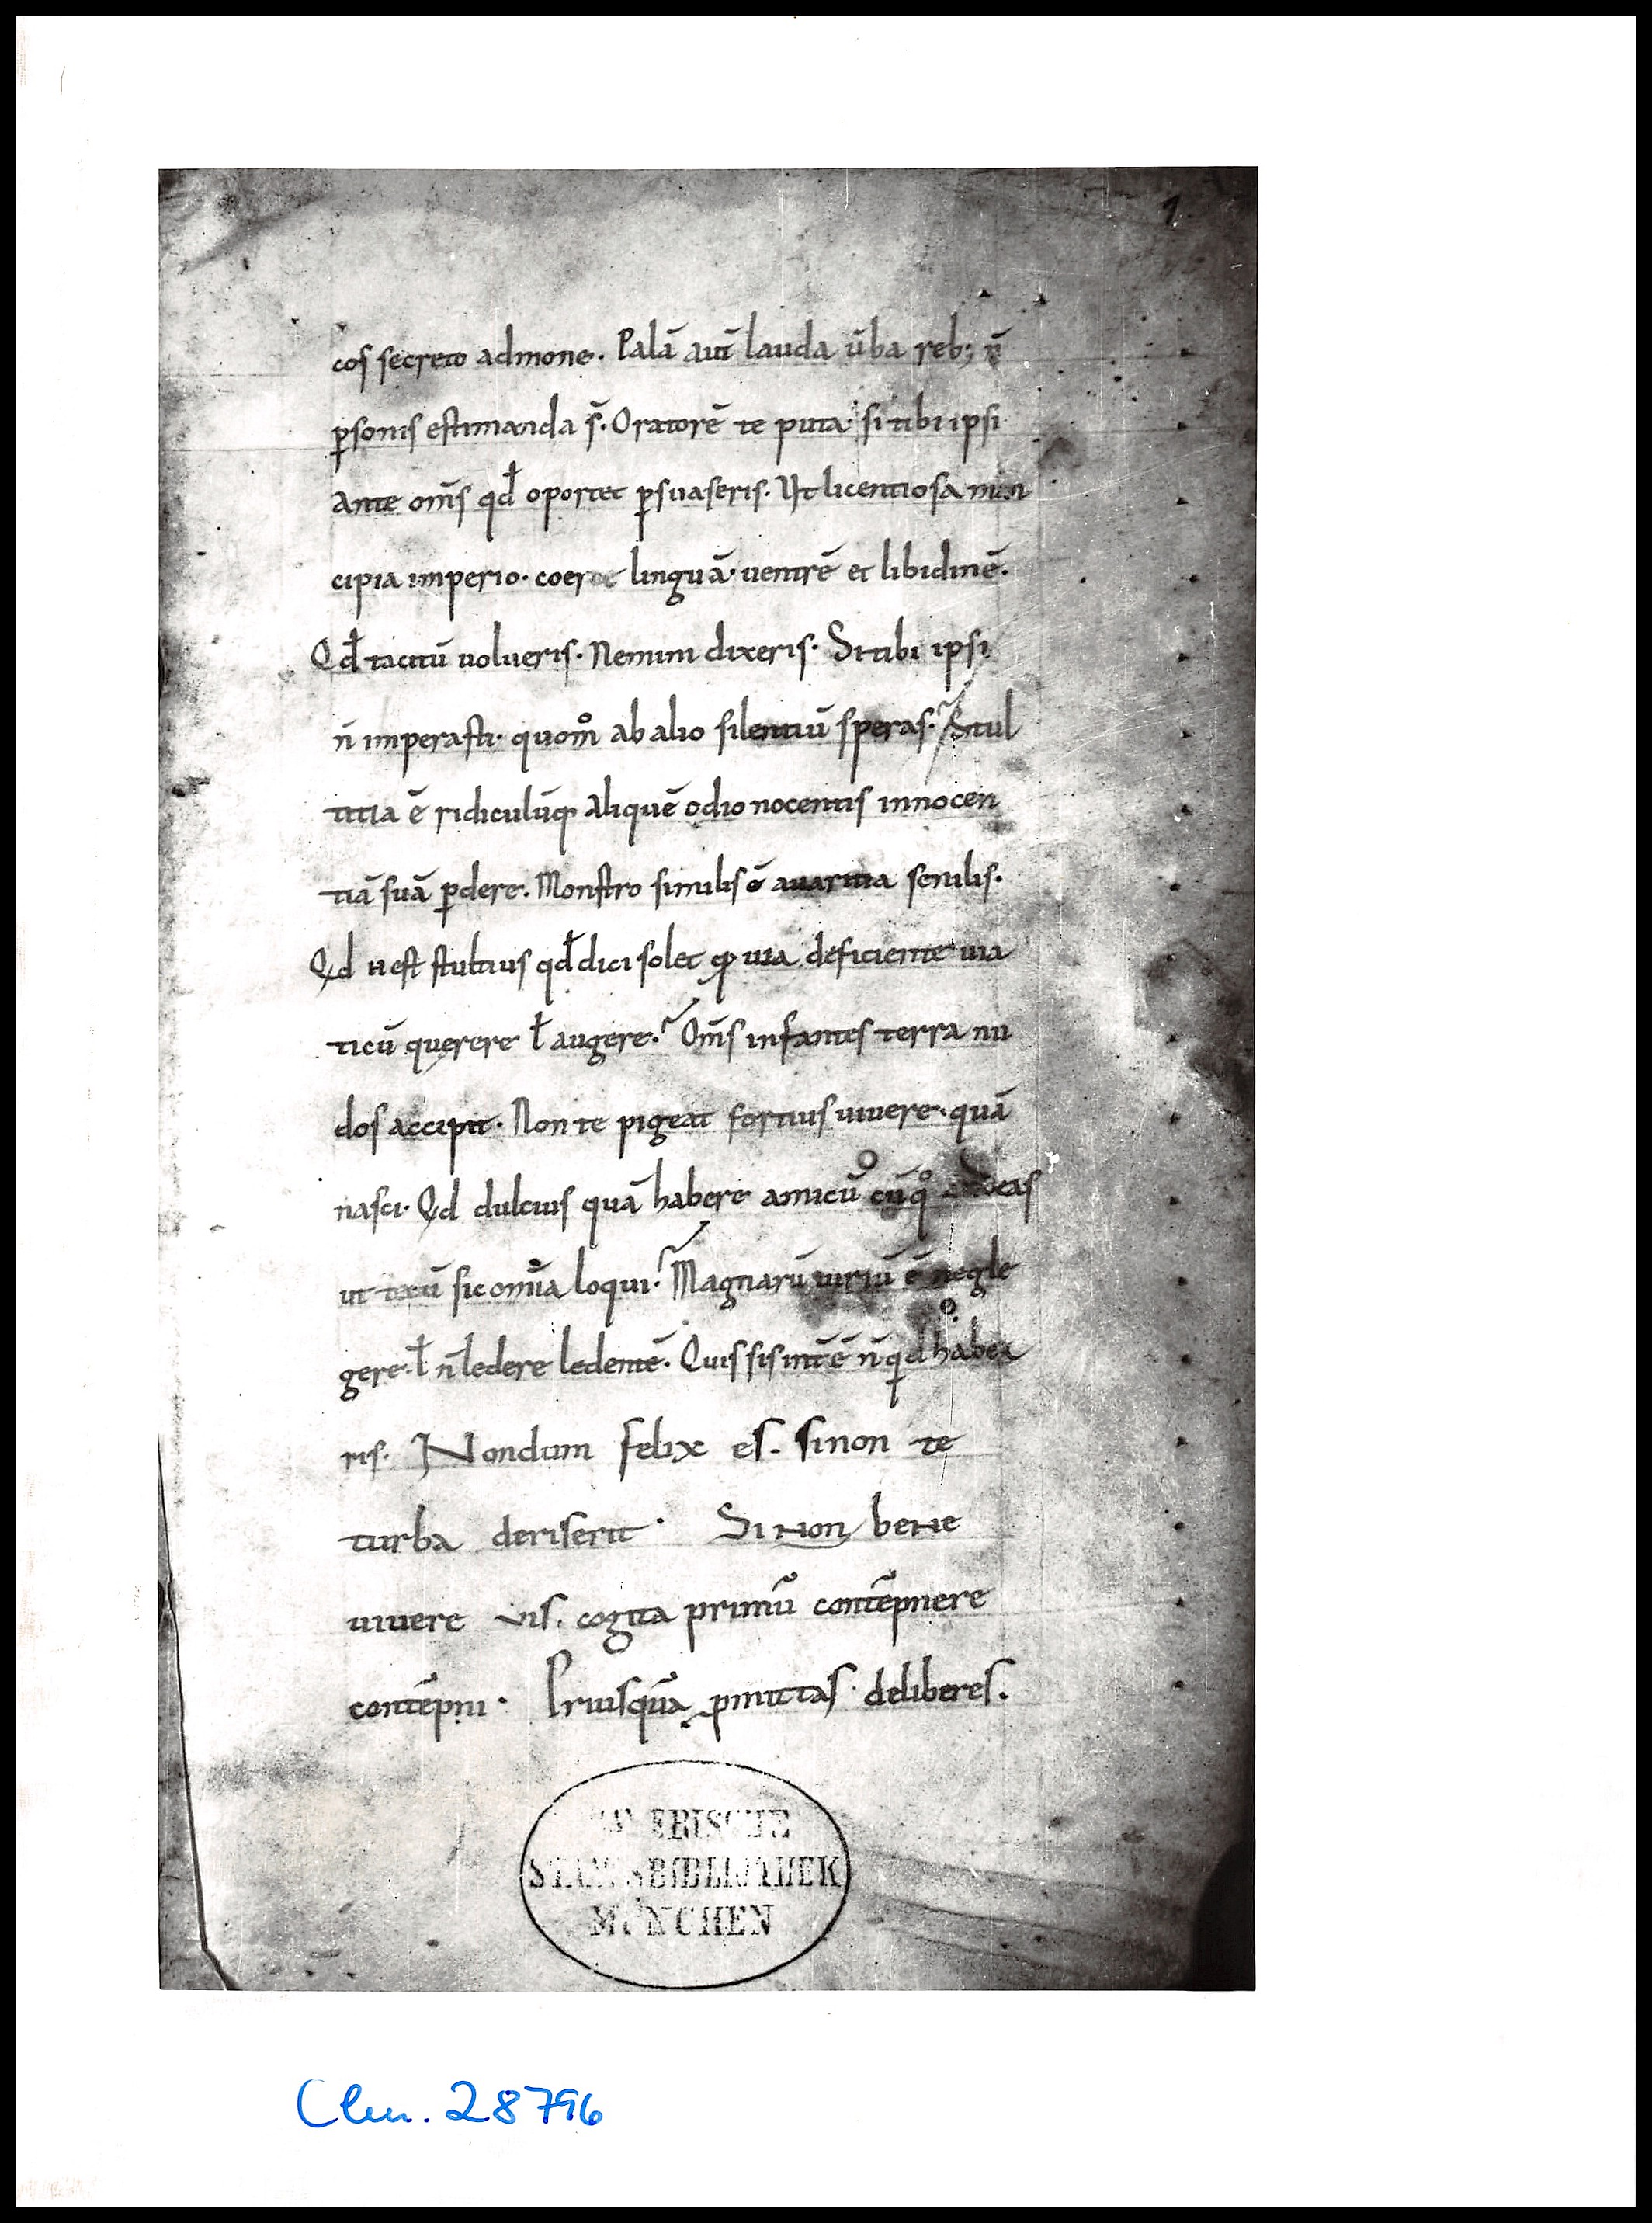 1
cos secreto admone. Palā aut̄ lauda ūba reb; n̄
ꝑsonis estimanda s̄. Oratorē te puta si tibi ipsi
ante om̄s qd̄ oportet ꝑsuaseris. Ut licentiosa man
cipia imperio. coerce linguā. uentrē et libidinē.
Qd̄ tacitū uolueris. Nemini dixeris. Si tibi ipsi
n̄ imperasti. quom̊ ab alio silentiū speras. Stul
titia ē ridiculūq; aliquē odio nocentis innocen
tiā suā ꝑdere. Monstro similis ē auaritia senilis.
Qd ÷ est stultius qd̄ dici solet ꝙ uia deficiente uia
ticū querere ł augere. Om̄s infantes terra nu
dos accipit. Non te pigeat fortius uiuere. quā
nasci. Qd dulcius quā habere amicū cū q̊
ut tecū sic omīa loqui. Magnarū uiriū ē negle
gere. ł n̄ ledere ledentē. Quis sis int̄ē n̄ qd habea
ris. Nondum felix es. sinon te
turba deriserit. Si non bene
uiuere vis. cogita primū contēpnere
contēpni. Priusquā ꝓmittas deliberes.
BAYERISCHE
STAATSBIBLIOTHEK
MÜNCHEN
Clm. 28796